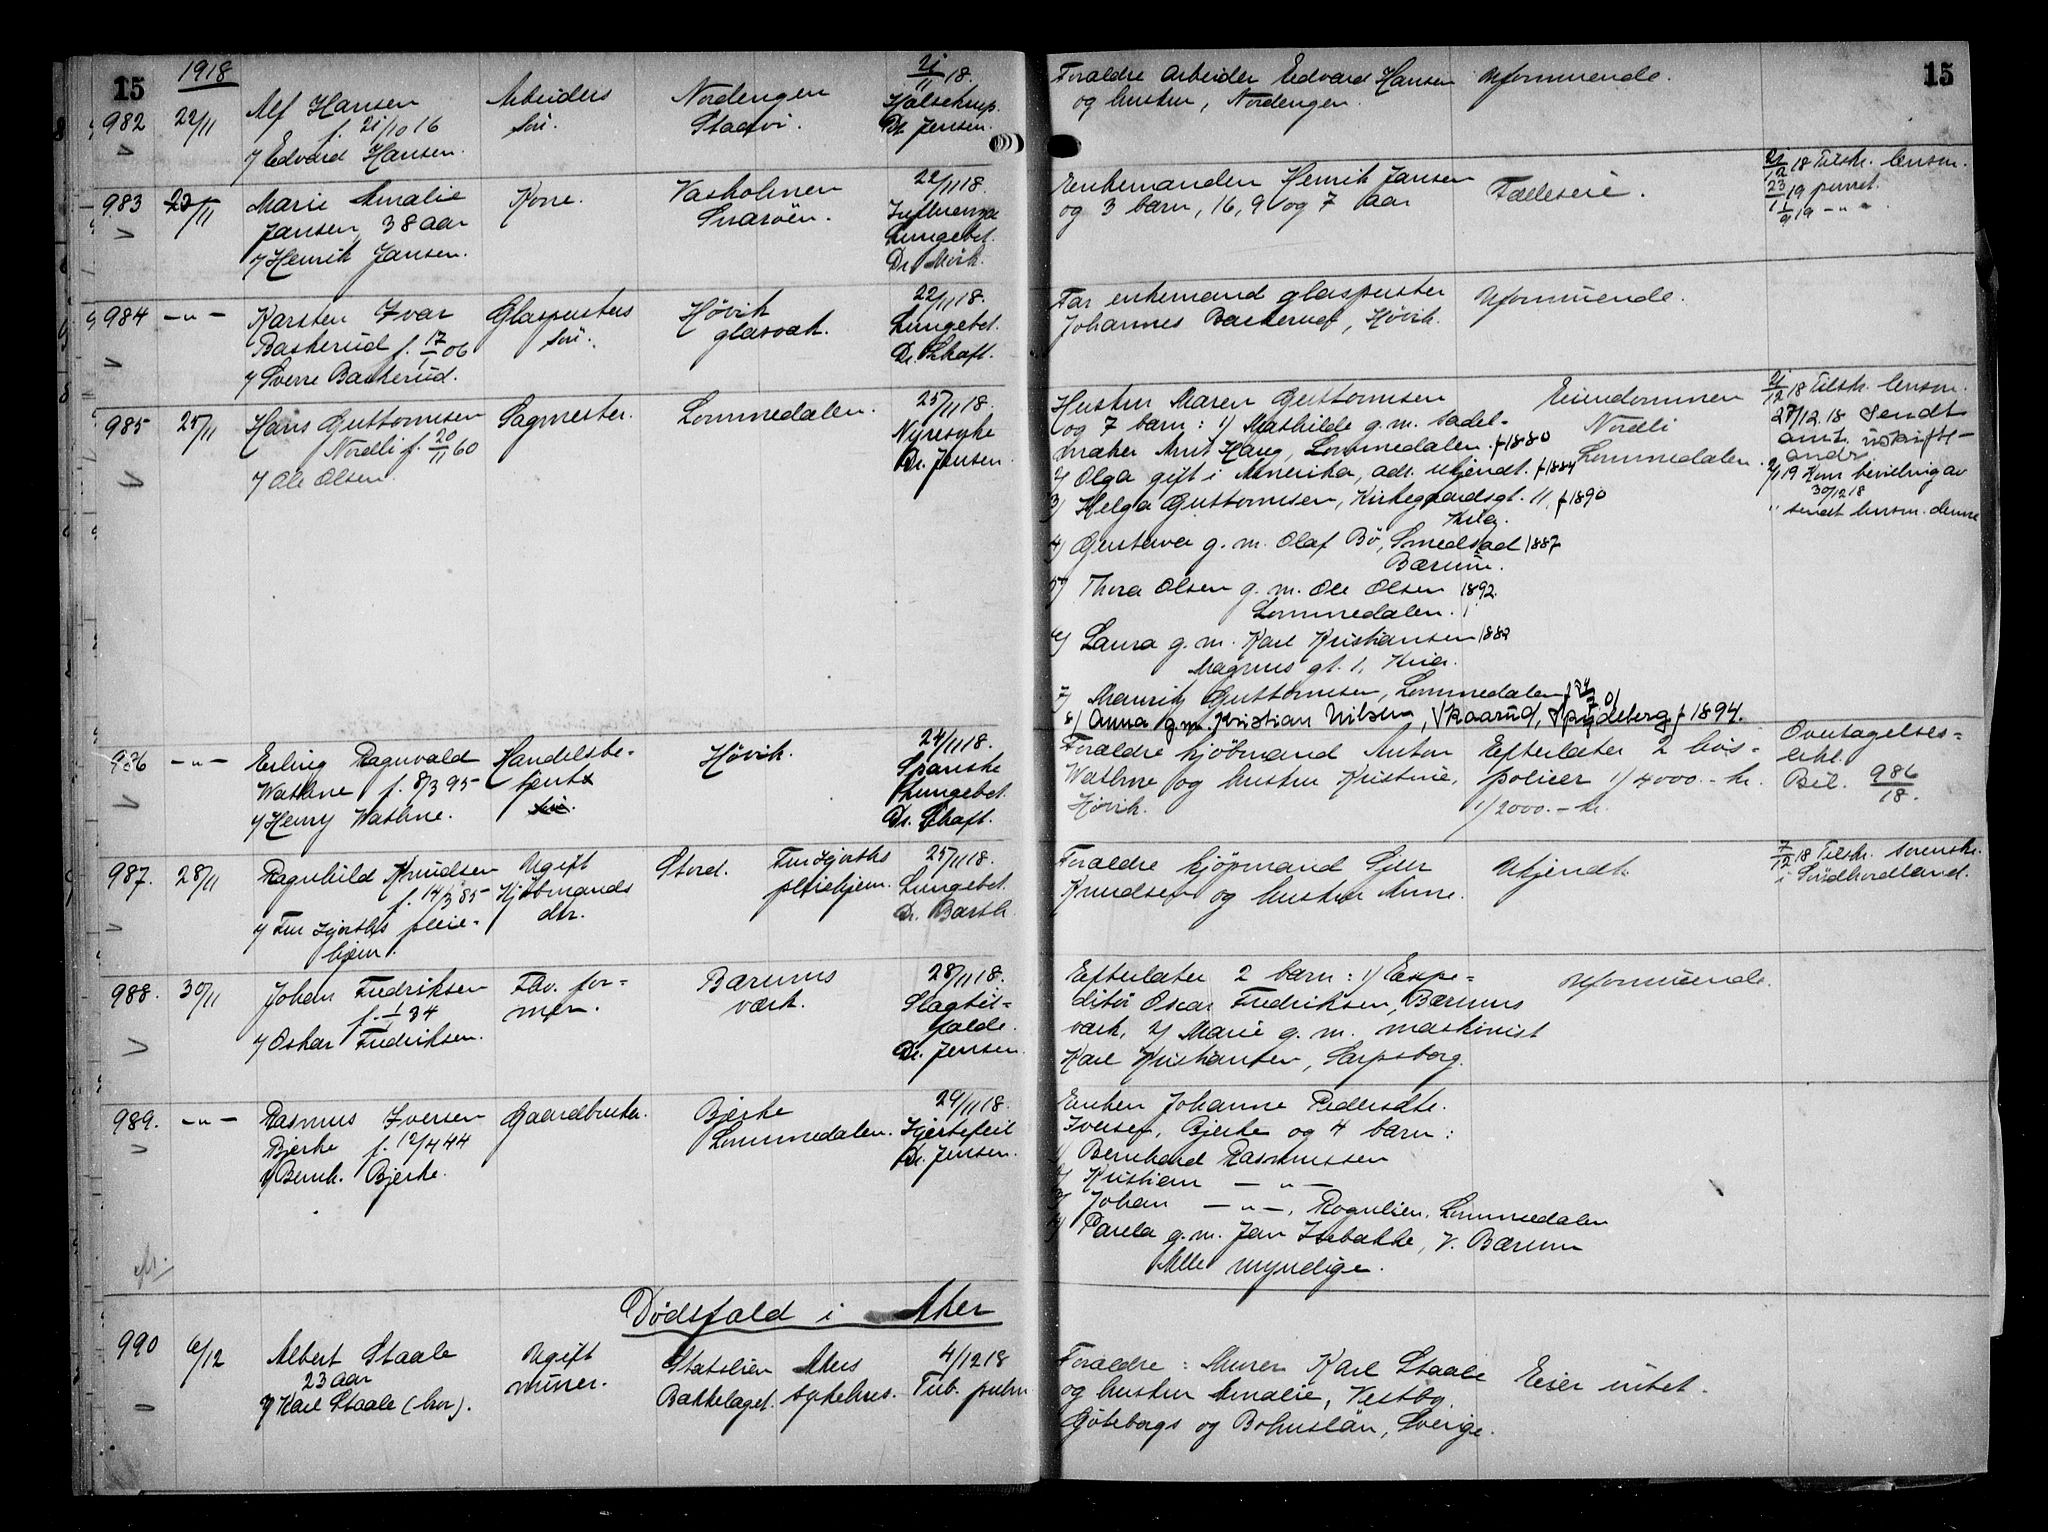 15
1918
982
22/11
Alf Hansen
f. 21/10 16
/ Edvard Hansen.
Arbeiders
søn.
Nordengen
Staavi.
21/11 18.
Halsekrup.
Dr. Jensen.
Forældre Arbeider Edvard Hansen
og hustru, Nordengen.
Uformuende.
15
983
23/11
Marie Amalie
Jansen, 38 aar
/ Henrik Jansen.
Kone.
Vasholmen
Snarøen.
22/11 18.
Influenza
Lungebet.
Dr. Mörk.
Enkemanden Henrik Jansen
og 3 barn, 16, 9 og 7 aar
Fælleseie.
21/12 18 Tilskr. lensm.
23/1 19 purret.
1/9 19 - " -
984
- " -
Karsten Ivar
Bakkerud f. 17/1 06
/ Sverre Bakkerud.
Glaspusters
søn.
Høvik
glasværk.
22/11 18.
Lungebet.
Dr. Schaft.
Far enkemand glaspuster
Johannes Bakkerud, Høvik.
Uformuende.
985
25/11
Hans Guttormsen
Nordli f. 20/11 60
/ Ole Olsen.
Sagmester.
Lommedalen.
25/11 18.
Nyresyke
Dr. Jensen.
Hustru Maren Guttormsen
og 7 barn: 1/ Mathilde g.m. sadel-
maker Amt Haug, Lommedalen. f 1880
2/ Olga gift i Amerika, adr. ukjendt. f 1884
3/ Helga Guttormsen, Kirkegaardsgt. 11, f 1890
Kria.
4/ Gustava g.m. Olaf Bö, Smedstad 1887
Bærum.
5/ Thora Olsen g.m. Ole Olsen 1892
Lommedalen.
6/ Laura g.m. Karl Kristiansen 1882
Magnus gt. 1, Kria.
7/ Mauritz Guttormsen, Lommedalen
8/ Anna g.m. Kristian Nilsen, Skaarud, Spydeberg f 1894.
Eiendommen
Nordli
Lommedalen.
21/12 18 Tilskr. lensm.
27/12 18 Sendt
amt. uskifte-
andr.
2/1 19 Kom bevilling av
30/12 18
" sendt lensm. denne
986
- " -
Erling Ragnvald
Wathne f. 8/3 95
/ Henry Wathne.
Handelsbe-
tjent
søn.
Høvik.
24/11 18.
Spanske
Lungebet.
Dr. Schaft.
Forældre kjöbmand Anton
Wathne og hustru Kristine,
Høvik.
Efterlater 2 livs-
policer 1/ 4000.- kr.
1/ 2000.- kr.
Overtagelses-
erkl.
Bil. 986/18.
987.
28/11
Ragnhild Knudsen
f. 14/3 85
/ Fru Hjorths pleie-
hjem.
Ugift
Kjöbmands
dtr.
Stord.
Fru Hjorths
pleiehjem.
25/11 18.
Lungebet.
Dr. Barth.
Forældre kjöpmand Sjur
Knudsen og hustru Anne.
Ukjendt.
7/12 18 Tilskr. sorenskr.
i Sündhordland.
988.
30/11
Johan Fredriksen
f. 1/1 34
/ Oskar Fredriksen.
Fhv. for-
mer.
Bærums
værk.
28/11 18.
Slagtil-
fælde.
Dr. Jensen.
Efterlater 2 barn: 1/ Expe-
ditör Oscar Fredriksen, Bærums
værk, 2/ Marie g.m. maskinist
Karl Kristiansen, Sarpsborg.
Uformuende.
989.
- " -
Rasmus Iversen
Bjerke f. 12/4 44
/ Bernh. Bjerke.
Gaardbruker.
Bjerke
Lommedalen.
29/11 18.
Hjertefeil
Dr. Jensen.
Enken Johanne Pedersdtr.
Iversen, Bjerke og 4 barn:
1/ Bernhard Rasmussen
2/ Kristian - " -
3/ Johan - " -, Rognlien, Lommedalen
4/ Paula g.m. Jan Isebakke, V. Bærum
Alle myndige.
Dödsfald i Aker
990
6/12
Albert Staale
23 aar
/ Karl Staale (bror).
Ugift
murer.
Statslien
Bakkelaget.
Akers
sykehus.
4/12 18
Tub. pulm
Forældre: Murer Karl Staale
og hustru Amalie, Vestby,
Göteborgs og Bohuslän, Sverige.
Eier intet.